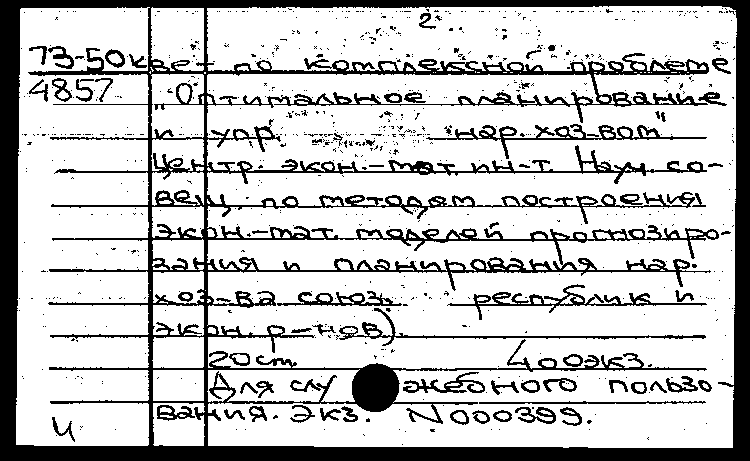 2
73-50к вет по комплексной проблеме
4857 „Оптимальное планирование
и упр. нар. хоз-вом"
Центр. экон.-мат. ин-т. Науч. со-
вещ. по методам построения
экон.-мат. моделей прогнозиро-
вания и планирования нар.
хоз-ва союз. республик и
экон. р-нов).
20 ст. 400 экз.
Для служебного пользо-
вания. Экз. N000399.
и